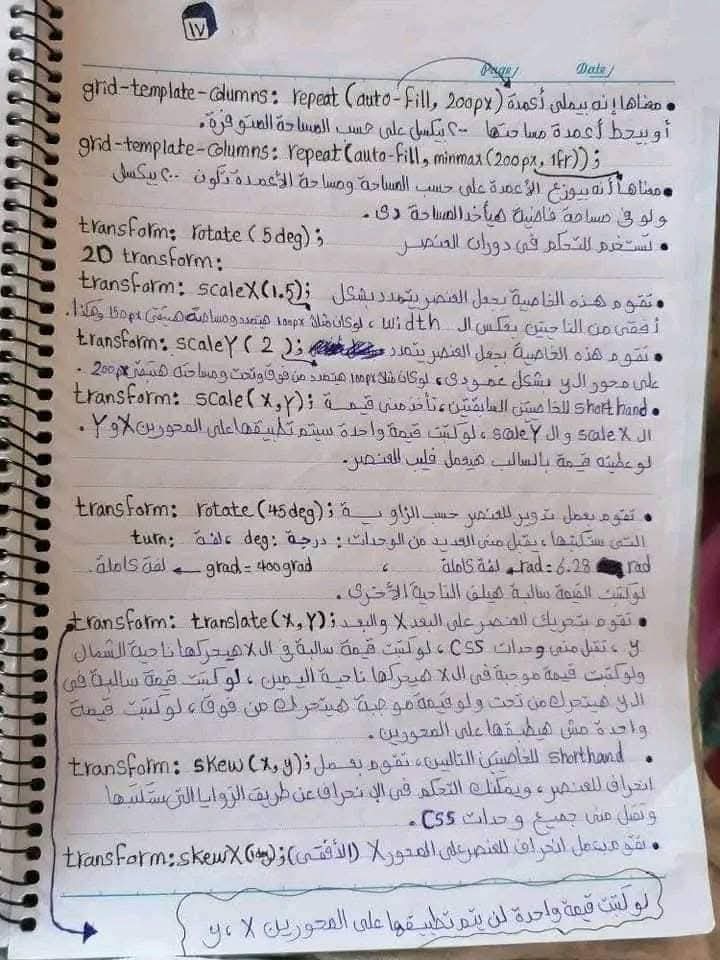 ١٧
Page/ Date/
grid-template-columns: repeat (auto-fill, 200px) • معناها إنه بيملى أعمدة
أو بيحط أعمدة مساحتها ٢٠٠ بيكسل على حسب المساحة المتوفرة.
grid-template-columns: repeat(auto-fill, minmax(200px, 1fr));
• معناها أنه بيوزع الأعمدة على حسب المساحة ومساحة الأعمدة تكون ٢٠٠ بيكسل
ولو في مساحة فاضية هيأخد المساحة دى.
transform: rotate (5deg); • تستخدم للتحكم في دوران العنصر
2D transform:
transform: scaleX(1.5); • تقوم هذه الخاصية بجعل العنصر يتمدد بشكل
أفقى من الناحيتين بعكس الـ width، لو كان مثلا 100px هيتمدد ومساحته هتبقى 150px وهكذا.
transform: scaleY(2); • تقوم هذه الخاصية بجعل العنصر يتمدد
على محور الـ y بشكل عمودى، لو كان مثلا 100px هيتمدد من فوق وتحت ومساحته هتبقى 200px.
transform: scale(x,y); • shorthand للخاصيتين السابقتين، تأخذ منى قيمة
الـ scaleX والـ scaleY، لو كتبت قيمة واحدة سيتم تطبيقها على المحورين X و Y.
لو عطيته قيمة بالسالب هيعمل فليب للعنصر.
transform: rotate(45deg); • تقوم بعمل تدوير للعنصر حسب الزاوية
التى ستكتبها، يقبل منى العديد من الوحدات: درجة :deg، لفة :turn
rad = 6.28 rad ← لفة كاملة، grad = 400grad ← لفة كاملة.
لو كتبت القيمة سالبة هيلف الناحية الأخرى.
transform: translate(x,y); • تقوم بتحريك العنصر على البعد X والبعد
y، تقبل منى وحدات CSS، لو كتبت قيمة سالبة في الـ X هيحركها ناحية الشمال
ولو كتبت قيمة موجبة في الـ X هيحركها ناحية اليمين، لو كتبت قيمة سالبة في
الـ y هيتحرك من تحت ولو قيمة موجبة هيتحرك من فوق، لو كتبت قيمة
واحدة مش هيطبقها على المحورين.
transform: skew (x,y); • shorthand للخاصيتين التاليين، تقوم بعمل
انحراف للعنصر، ويمكنك التحكم في الإنحراف عن طريق الزوايا التى ستكتبها
وتقبل منى جميع وحدات CSS.
transform: skewX(deg); • تقوم بعمل انحراف للعنصر على المحور X (الأفقى)
لو كتبت قيمة واحدة لن يتم تطبيقها على المحورين y، X